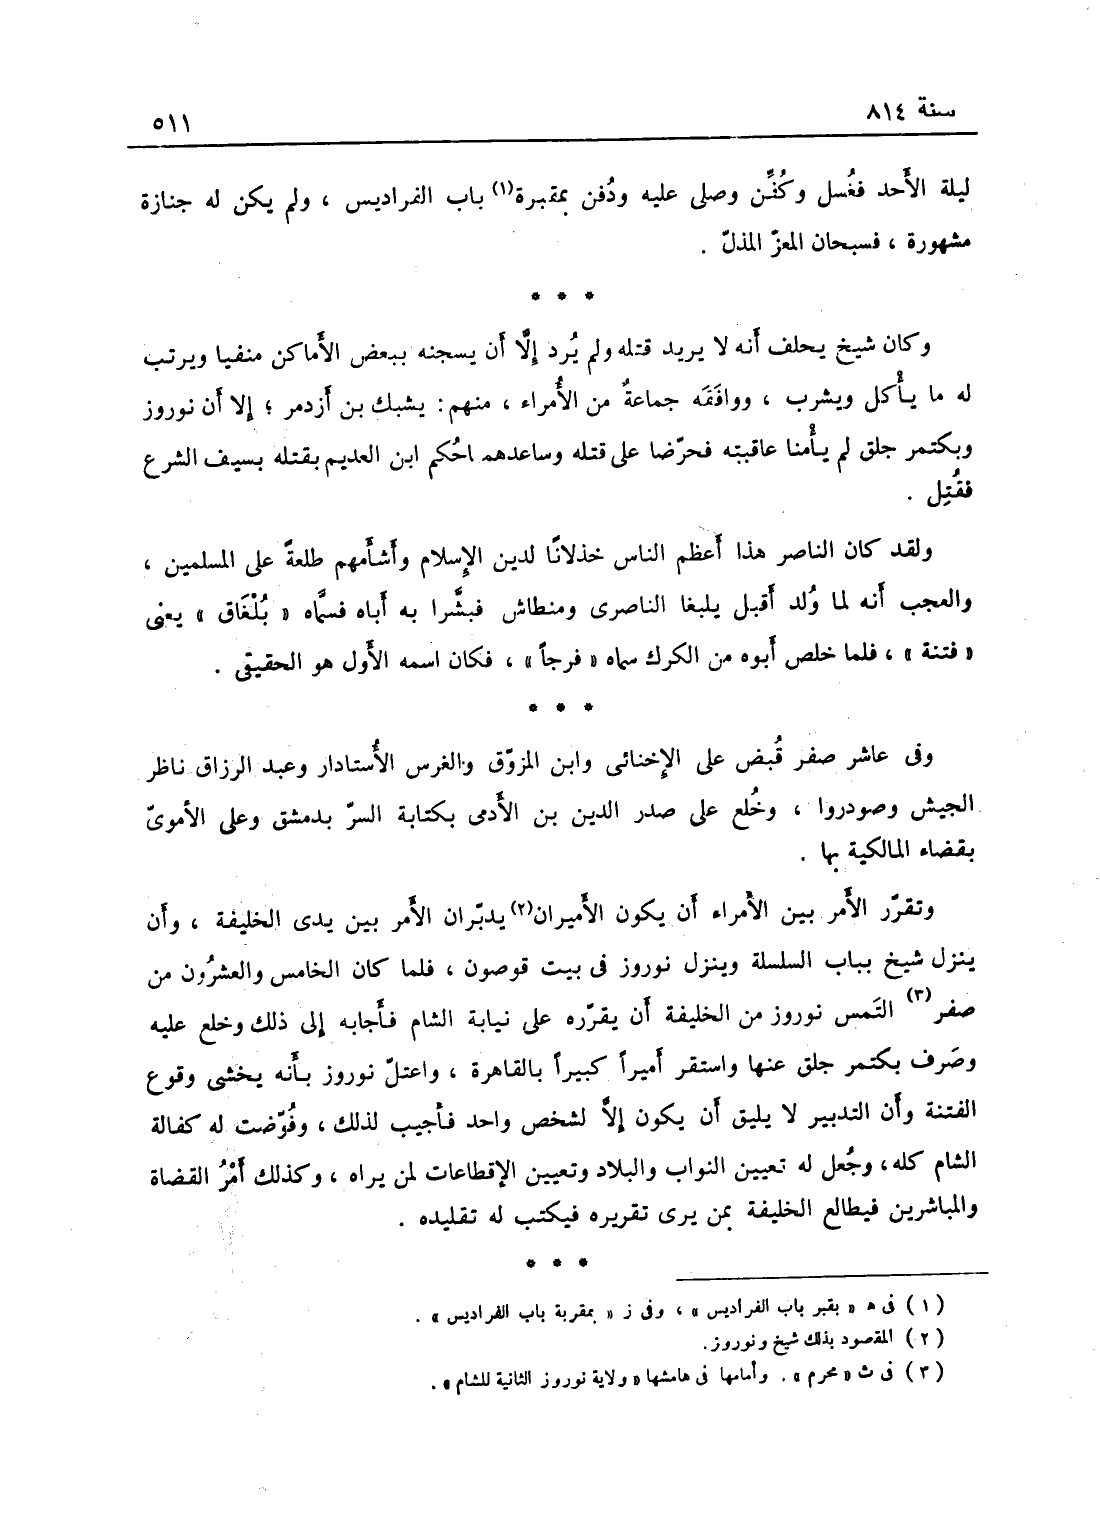 سنة ٨١٤
٥١١
ليلة الأَحد فغُسل وكُفِّن وصلى عليه ودُفن بمقبرة(١) باب الفراديس ، ولم يكن له جنازة
مشهورة ، فسبحان المعزّ المذلّ .
* * *
وكان شيخ يحلف أَنه لا يريد قتله ولم يُرد إِلَّا أَن يسجنه ببعض الأَماكن منفيا ويرتب
له ما يأْكل ويشرب ، ووافَقَه جماعةٌ من الأُمراء ، منهم : يشبك بن أَزدمر ؛ إلا أن نوروز
وبكتمر جلق لم يأْمنا عاقبته فحرّضا على قتله وساعدهما حُكم ابن العديم بقتله بسيف الشرع
فقُتِل .
ولقد كان الناصر هذا أَعظم الناس خذلانًا لدين الإِسلام وأَشأَمهم طلعةً على المسلمين ،
والعجب أَنه لما وُلد أَقبل يلبغا الناصرى ومنطاش فبشَّرا به أَباه فسمَّاه « بُلْغَاق » يعنى
« فتنة » ، فلما خلص أَبوه من الكرك سماه « فرجاً » ، فكان اسمه الأَول هو الحقيقى .
* * *
وفى عاشر صفر قُبض على الإِخنائى وابن المزوّق والغرس الأُستادار وعبد الرزاق ناظر
الجيش وصودروا ، وخُلع على صدر الدين بن الأَدمى بكتابة السرّ بدمشق وعلى الأموىّ
بقضاء المالكية بها .
وتقرّر الأَمر بين الأَمراء أَن يكون الأَميران(٢) يدبّران الأَمر بين يدى الخليفة ، وأَن
ينزل شيخ بباب السلسلة وينزل نوروز فى بيت قوصون ، فلما كان الخامس والعشرُون من
صفر(٣) التَمس نوروز من الخليفة أَن يقرّره على نيابة الشام فأَجابه إِلى ذلك وخلع عليه
وصَرف بكتمر جلق عنها واستقر أَميراً كبيراً بالقاهرة ، واعتلّ نوروز بأَنه يخشى وقوع
الفتنة وأَن التدبير لا يليق أَن يكون إِلاَّ لشخص واحد فأجيب لذلك ، وفُوّضت له كفالة
الشام كله ، وجُعل له تعيين النواب والبلاد وتعيين الإقطاعات لمن يراه ، وكذلك أَمْرُ القضاة
والمباشرين فيطالع الخليفة بمن يرى تقريره فيكتب له تقليده .
* * *
(١) فى ه « بقبر باب الفراديس » ، وفى ز « بمقربة باب الفراديس » .
(٢) المقصود بذلك شيخ ونوروز .
(٣) فى ث « محرم » . وأمامها فى هامشها « ولاية نوروز الثانية للشام » .